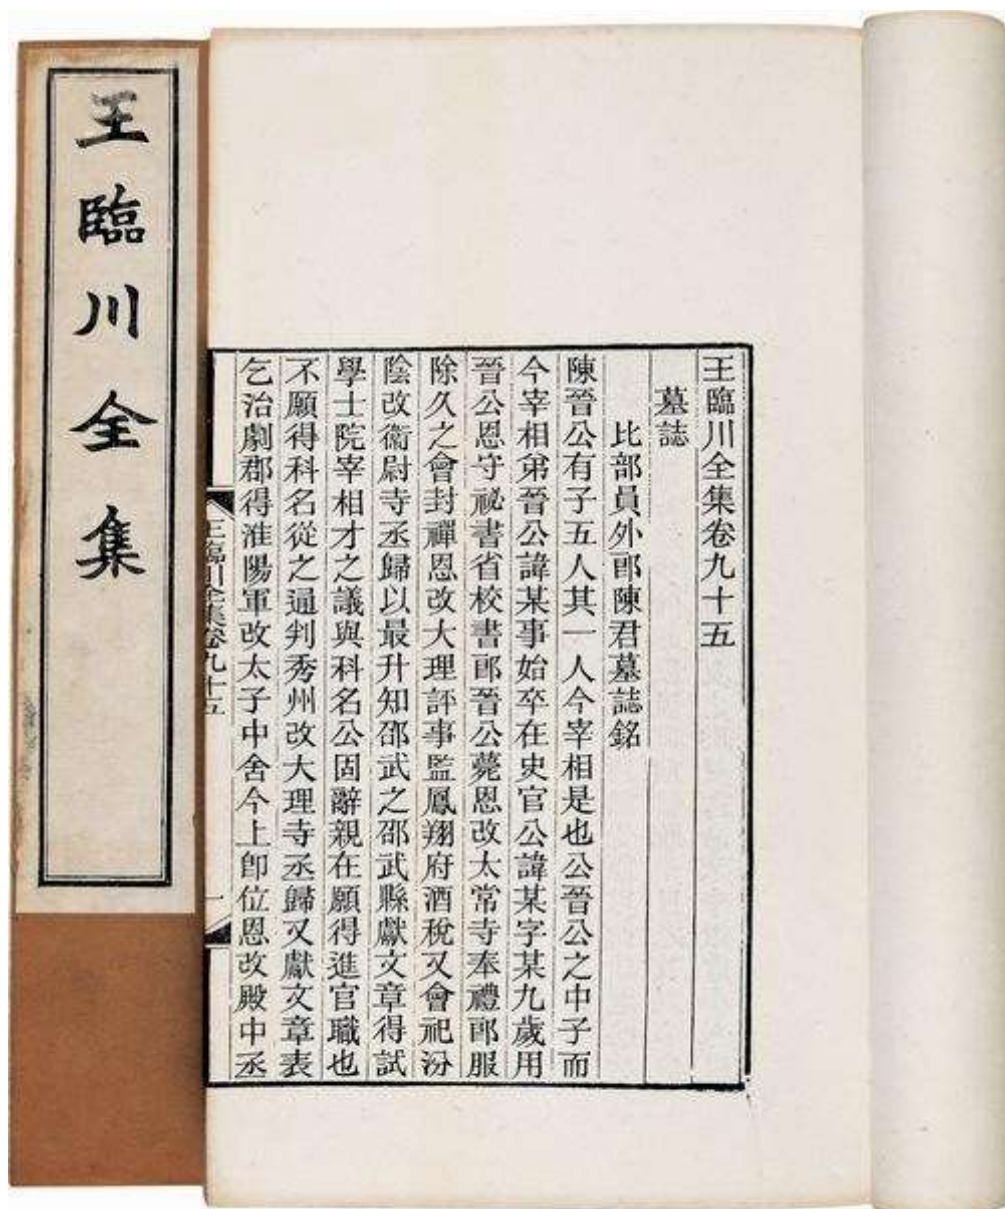 王臨川全集
王臨川全集卷九十五
墓誌
比部員外郎陳君墓誌銘
陳晉公有子五人其一人今宰相是也公晉公之中子而
今宰相弟晉公諱某事始卒在史官公諱某字某九歲用
晉公恩守祕書省校書郎晉公薨恩改太常寺奉禮郎服
除久之會封禪恩改大理評事監鳳翔府酒稅又會祀汾
陰改衞尉寺丞歸以最升知邵武之邵武縣獻文章得試
學士院宰相才之議與科名公固辭親在願得進官職也
不願得科名從之通判秀州改大理寺丞歸又獻文章表
乞治劇郡得淮陽軍改太子中舍今上卽位恩改殿中丞
王臨川全集卷九十五
一